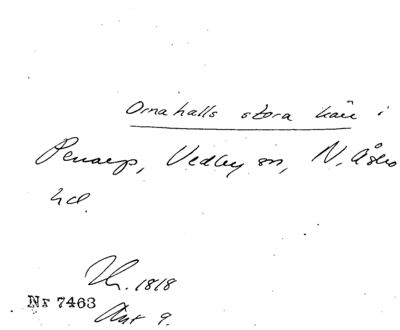 Ornahalls stora kärr i
Penarp, Vedby sn, N. Åsbo
hd.
Nr 7463
1818
Akt 9.